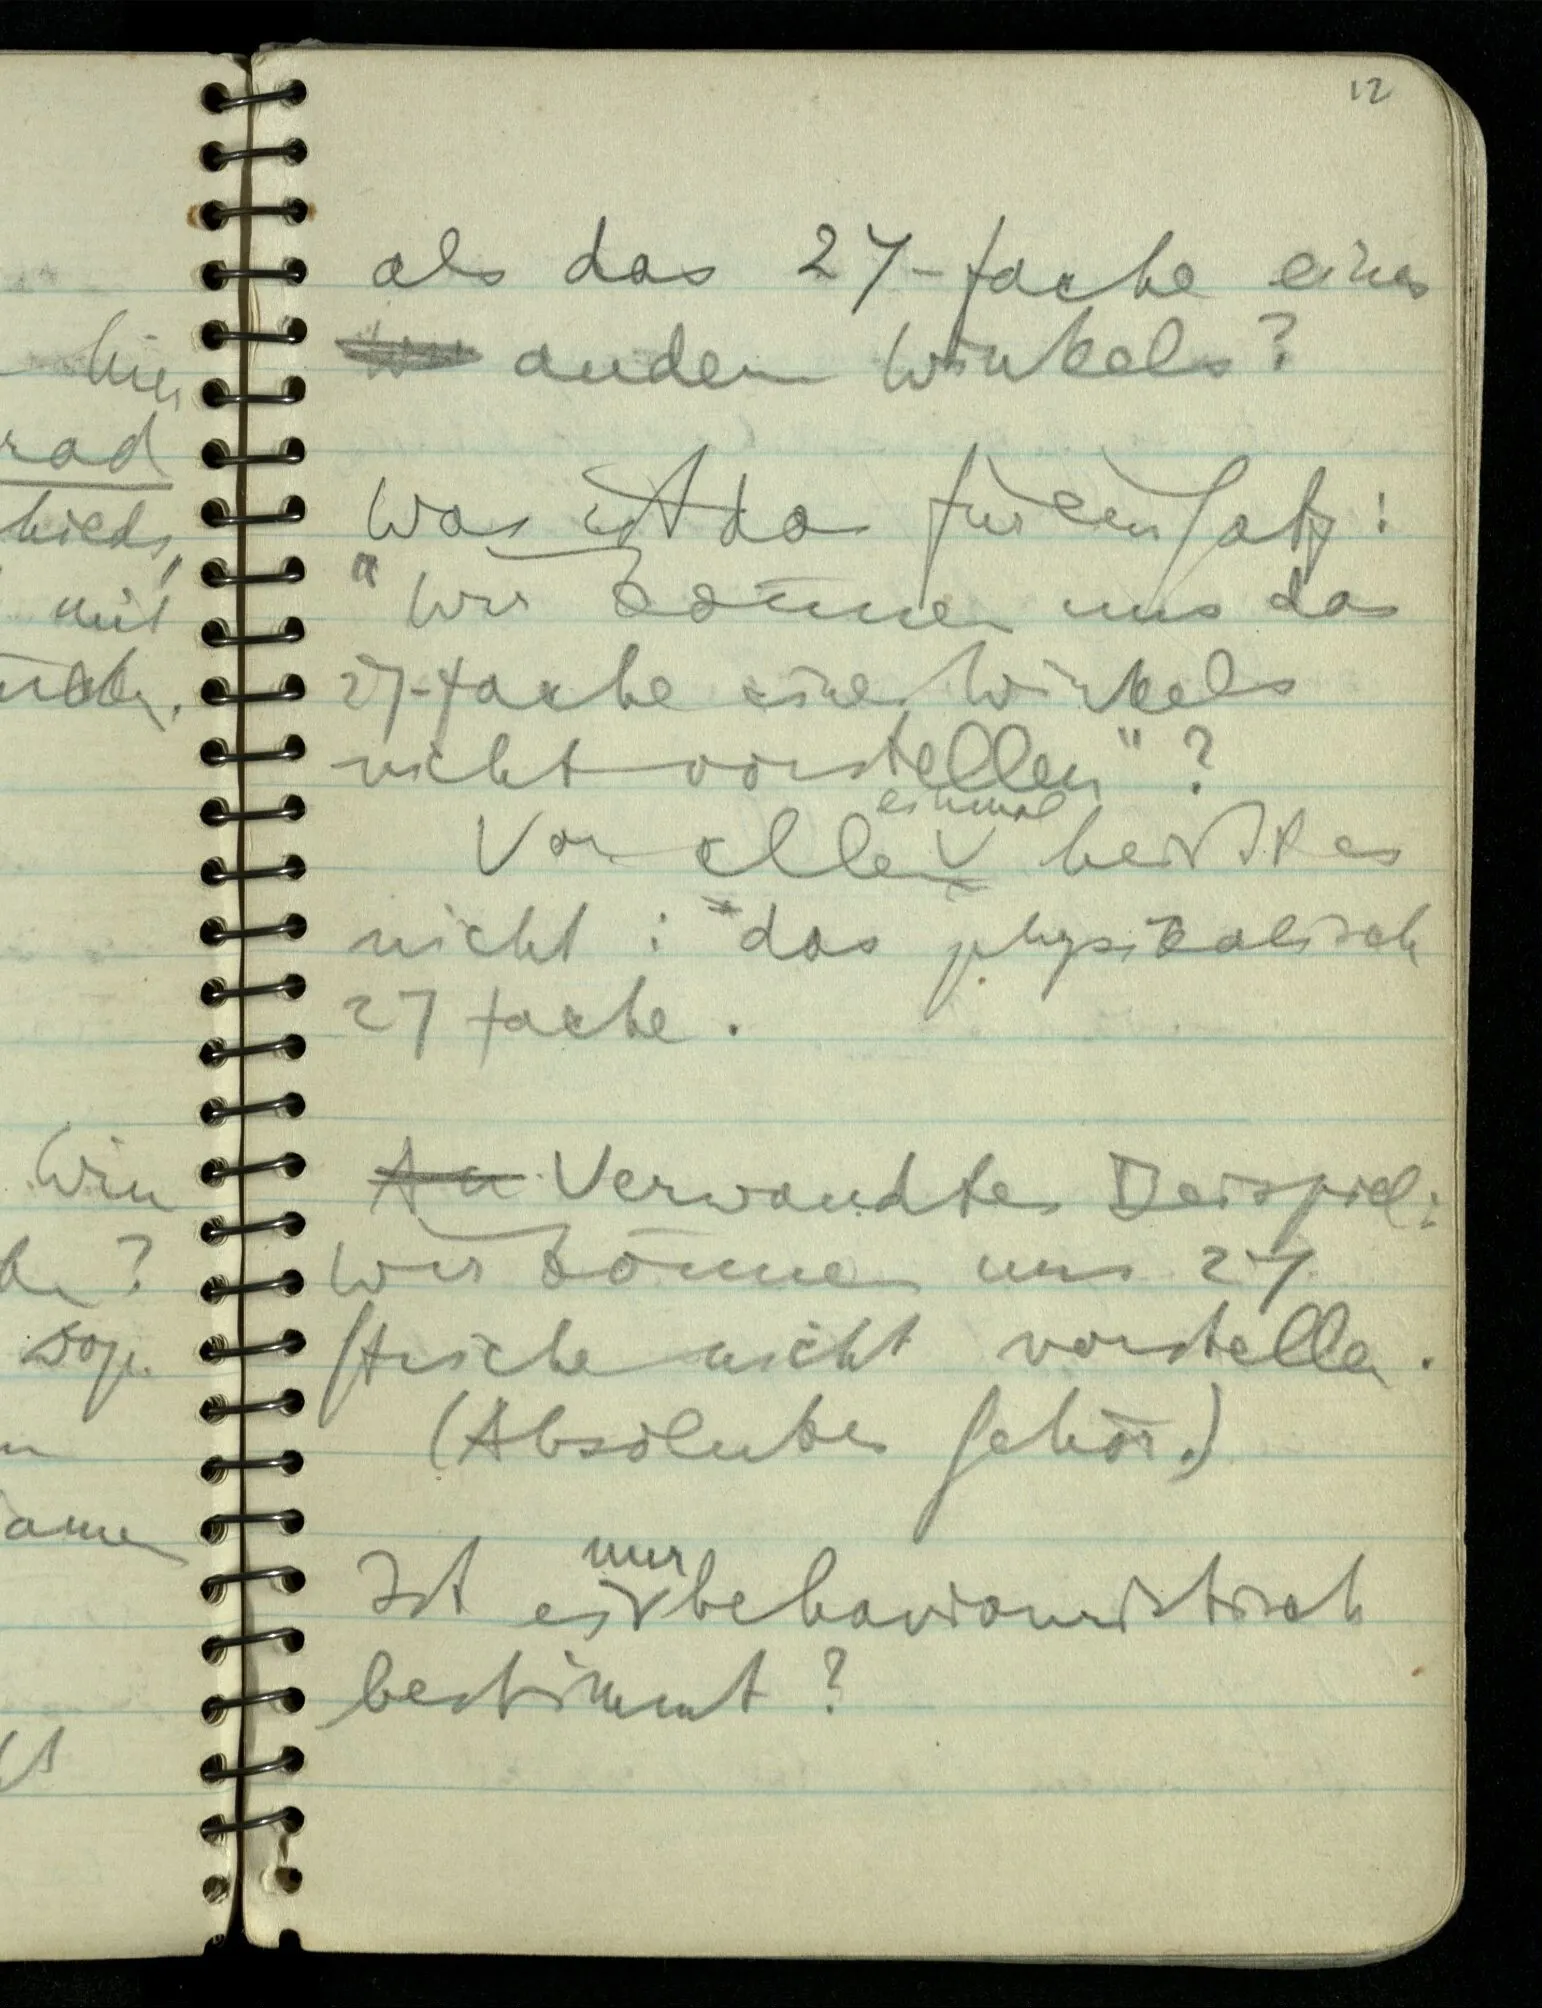 12
als das 27-fache eines
andern Winkels?
Was ist das für ein Satz:
"Wir können uns das
27-fache eines Winkels
nicht vorstellen"?
Vor allem einmal heißt es
nicht: "das physikalisch
27 fache.
An Verwandtes Beispiel:
Wir können uns 27
Striche nicht vorstellen.
(Absolutes Gehör.)
Ist es nur behaviouristisch
bestimmt?
hier
rad
hieds,
mit
Win
?
sog.